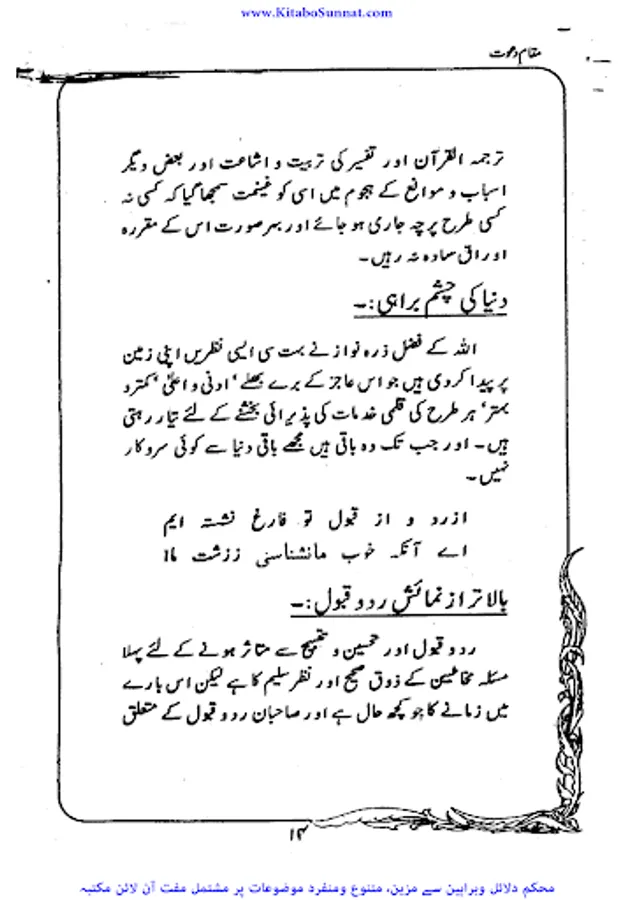 www.KitaboSunnat.com
مقام دعوت
ترجمہ القرآن اور تفسیر کی تربیت و اشاعت اور بعض دیگر
اسباب و موانع کے ہجوم میں اسی کو غنیمت سمجھا گیا کہ کسی نہ
کسی طرح پرچہ جاری ہو جائے اور بہرصورت اس کے مقررہ
اوراق سادہ نہ رہیں۔
دنیا کی چشم براہی:۔
اللہ کے فضل ذرہ نواز نے بہت سی ایسی نظریں اپنی زمین
پر پیدا کر دی ہیں جو اس عاجز کے برے بھلے‘ ادنی و اعلیٰ‘ کمتر و
بہتر‘ ہر طرح کی قلمی خدمات کی پذیرائی بخشنے کے لئے تیار رہتی
ہیں۔ اور جب تک وہ باقی ہیں مجھے باقی دنیا سے کوئی سروکار
نہیں۔
ازرد و از قبول تو فارغ نشستہ ایم
اے آنکہ خوب مانشناسی ززشت ما!
بالا تر از نمائش رد و قبول:۔
رد و قبول اور تحسین و تقبیح سے متاثر ہونے کے لئے پہلا
مسئلہ مخاطبین کے ذوق صحیح اور نظر سلیم کا ہے لیکن اس بارے
میں زمانے کا جو کچھ حال ہے اور صاحبان رد و قبول کے متعلق
۱۴
محکم دلائل وبراہین سے مزین، متنوع ومنفرد موضوعات پر مشتمل مفت آن لائن مکتبہ